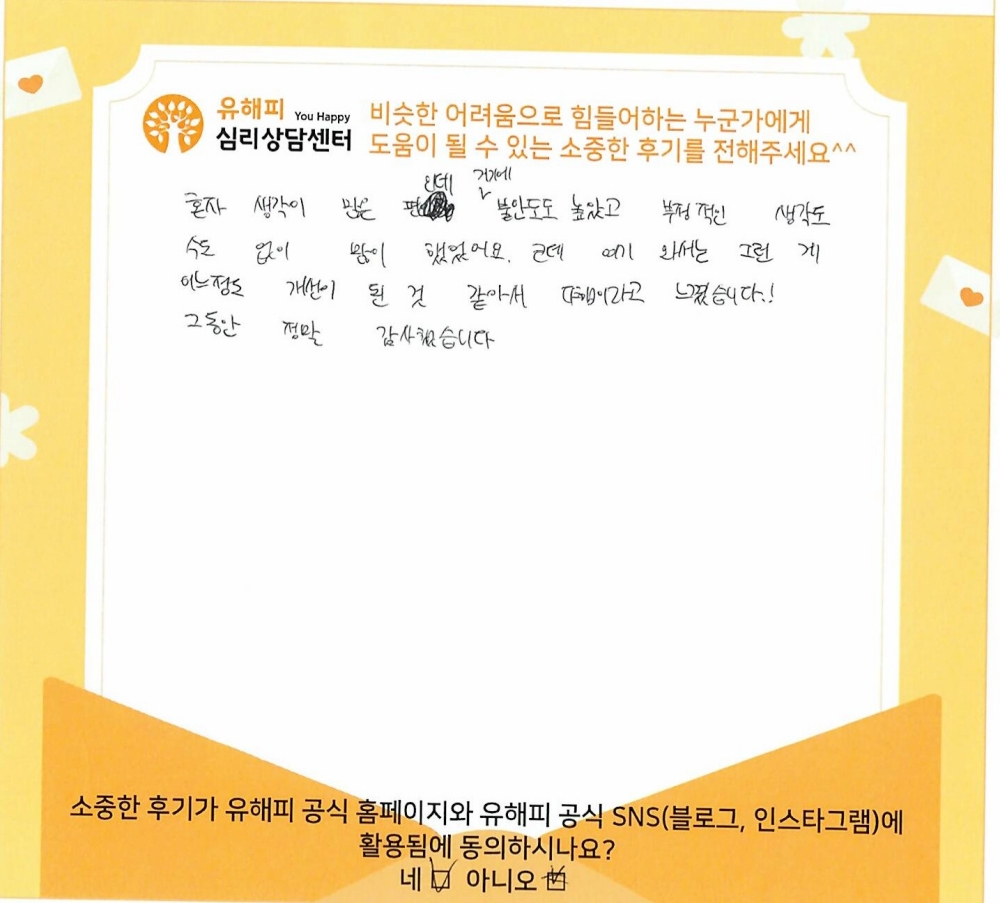 유해피 You Happy
심리상담센터
비슷한 어려움으로 힘들어하는 누군가에게
도움이 될 수 있는 소중한 후기를 전해주세요^^
혼자 생각이 많은 편인데 거기에 불안도도 높았고 부정적인 생각도
수도 없이 많이 했었어요. 근데 여기 와서는 그런 게
어느정도 개선이 된 것 같아서 다행이라고 느꼈습니다!
그동안 정말 감사했습니다
소중한 후기가 유해피 공식 홈페이지와 유해피 공식 SNS(블로그, 인스타그램)에
활용됨에 동의하시나요?
네 아니오